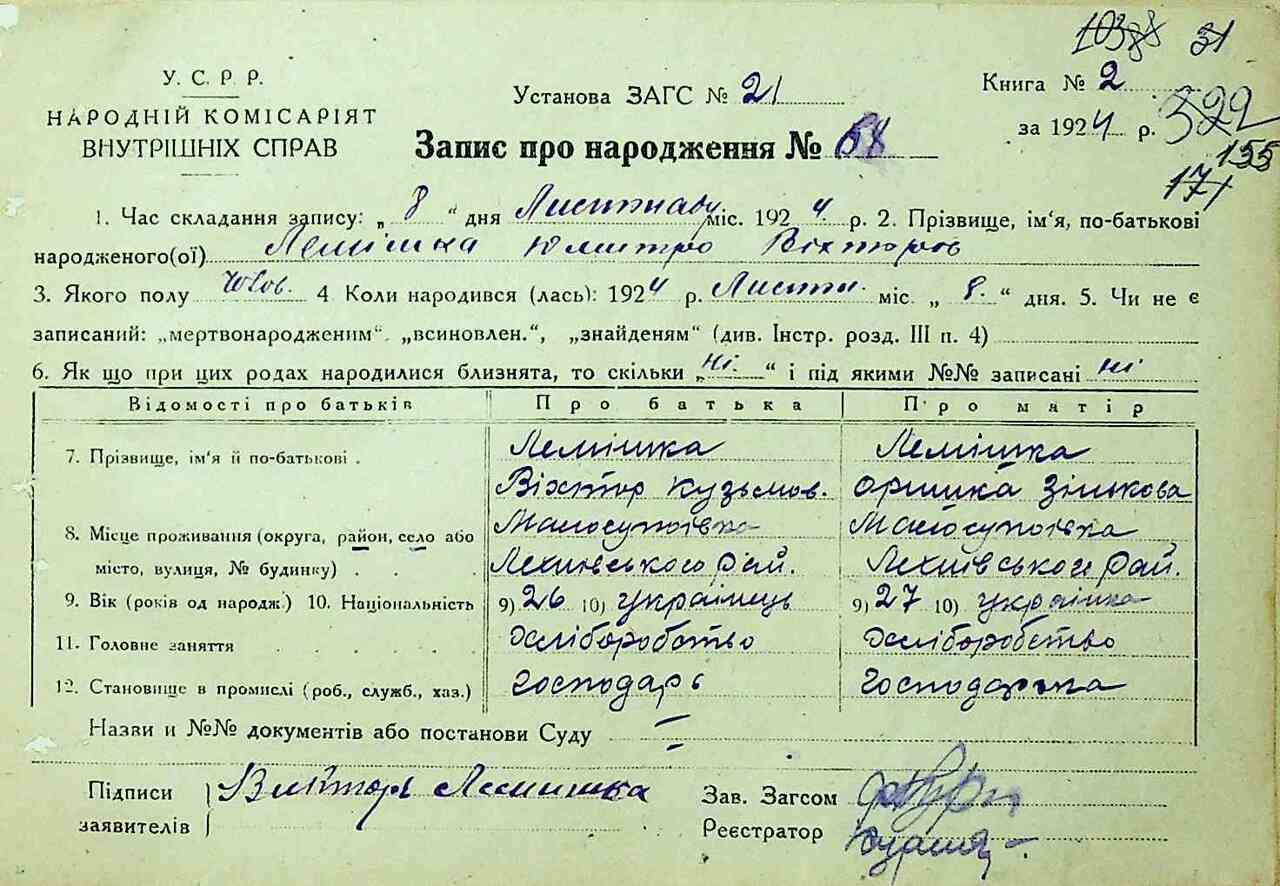 10388 31
У. С. Р. Р.
НАРОДНІЙ КОМІСАРІЯТ
ВНУТРІШНІХ СПРАВ
Установа ЗАГС № 21
Книга № 2
за 1924 р. 322
155
171
Запис про народження № 68
1. Час складання запису: „ 8 “ дня Листпаду міс. 1924 р. 2. Прізвище, ім'я, по-батькові
народженого(ої) Лемішка Юмитро Віхторов
3. Якого полу чов. 4 Коли народився (лась): 1924 р. Листп. міс. „ 8. “ дня. 5. Чи не є
записаний: „мертвонародженим“, „всиновлен.“, „знайденям“ (див. Інстр. розд. III п. 4)
6. Як що при цих родах народилися близнята, то скільки „ ні. “ і під якими №№ записані ні
Відомості про батьків Про батька Про матір
7. Прізвище, ім'я й по-батькові . Лемішка Лемішка
Віхтор Кузьмов. Оришка Зінькова
8. Місце проживання (округа, район, село або Малосупоївка Малосупоївка
місто, вулиця, № будинку) . . . Яехнівського Рай. Яехнівського Рай.
9. Вік (років од народж.) 10. Національність 9) 26 10) українець 9) 27 10) українка
11. Головне заняття . . . . . хліборобство хліборобство
12. Становище в промислі (роб., служб., хаз.) господарь господарька
Назви и №№ документів або постанови Суду =
Підписи Викторъ Лемишка Зав. Загсом
заявителів Реєстратор